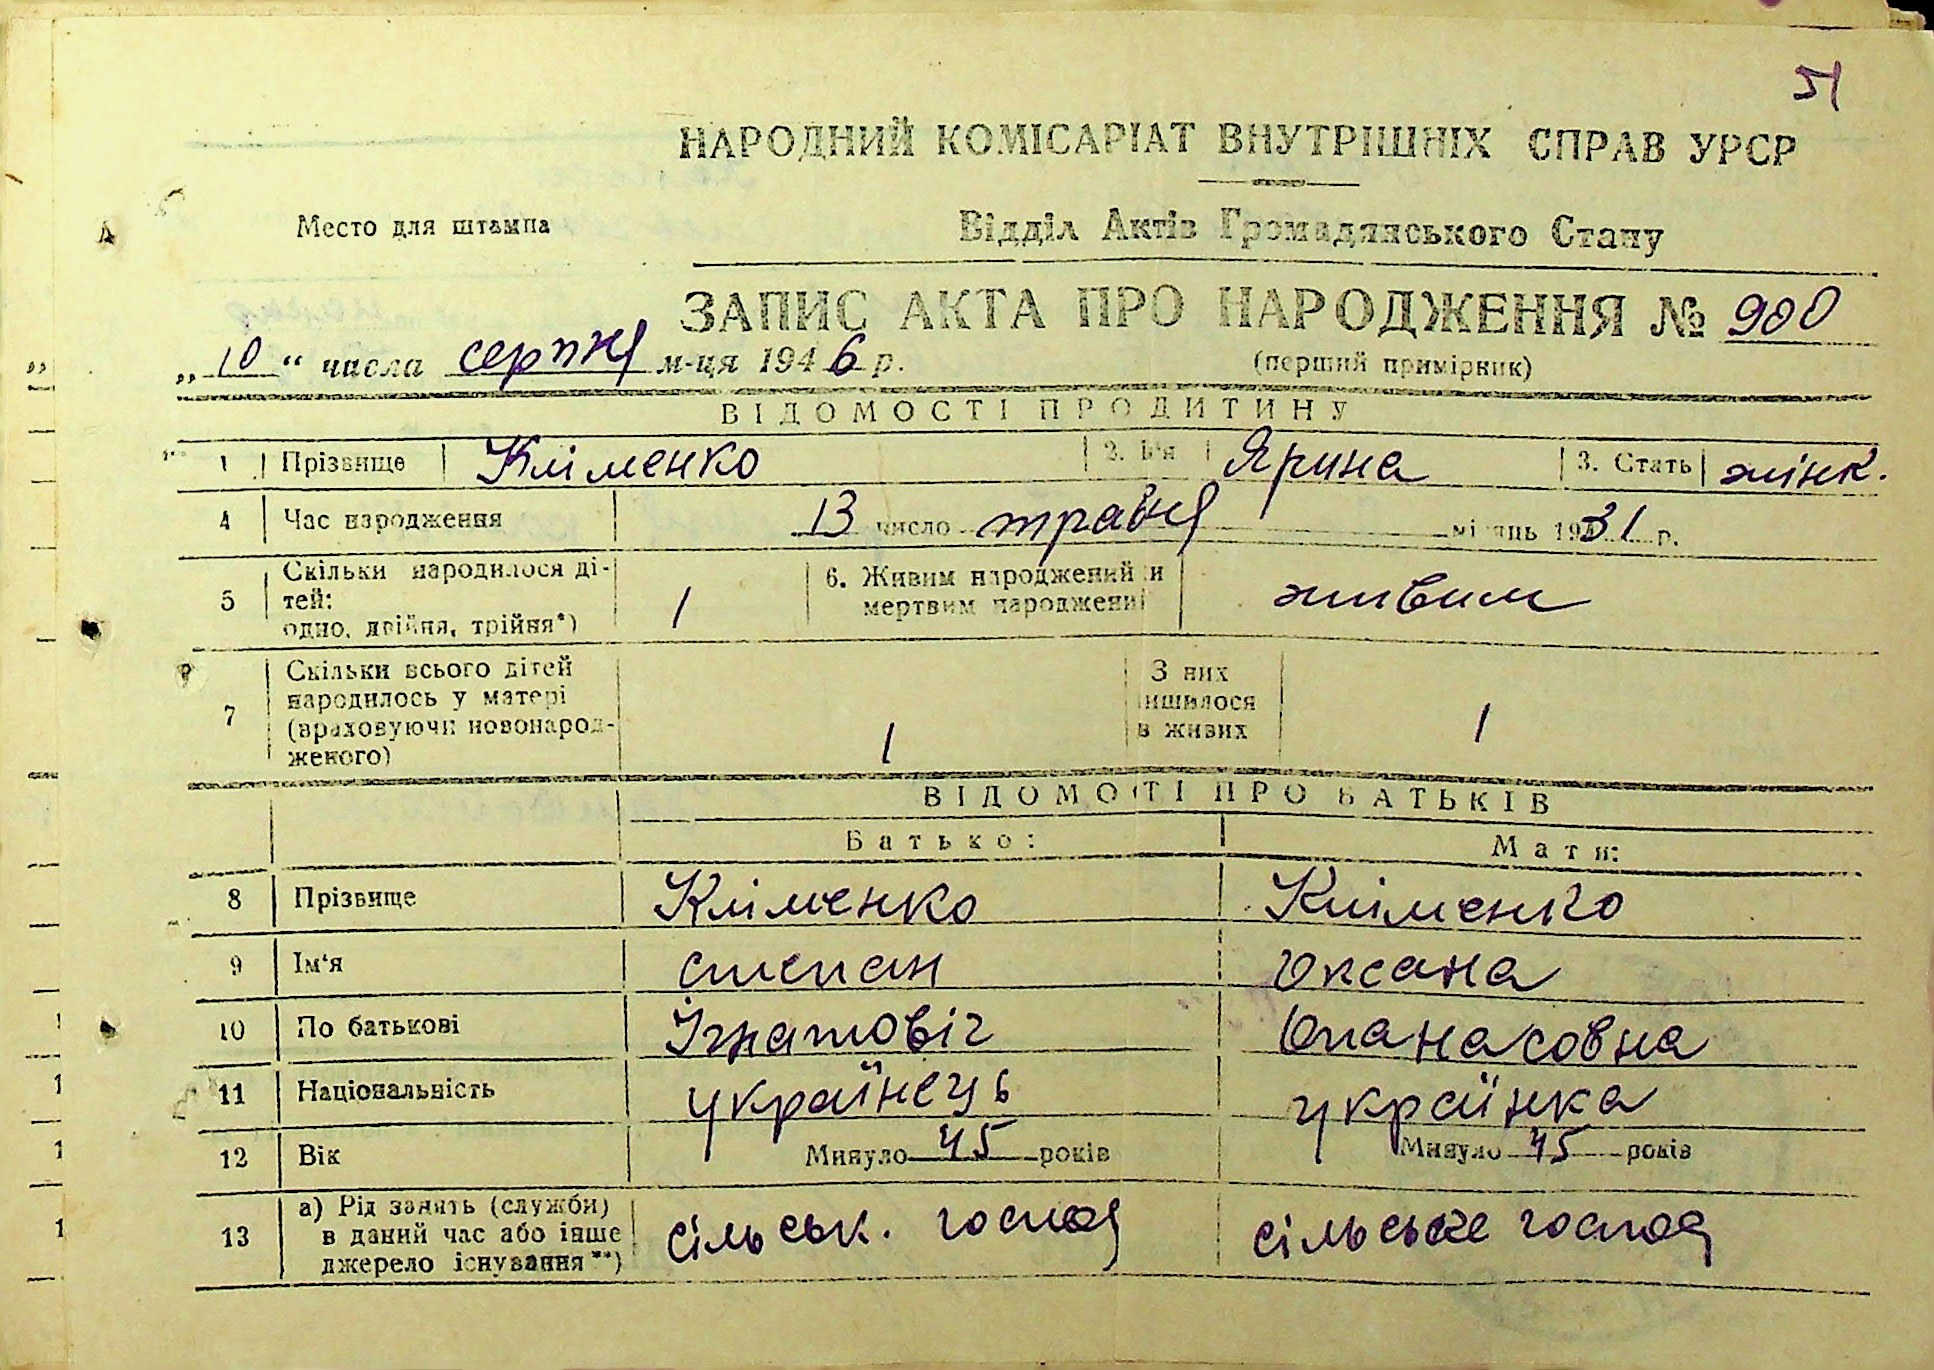 51
НАРОДНИЙ КОМІСАРІАТ ВНУТРІШНІХ СПРАВ УРСР
Место для штампа
Відділ Актів Громадянського Стану
ЗАПИС АКТА ПРО НАРОДЖЕННЯ № 900
„10“ числа серпня м-ця 1946 р.
(перший примірник)
ВІДОМОСТІ ПРО ДИТИНУ
1 Прізвище Кліменко 2. Ім'я Ярина 3. Стать жінк.
4 Час народження 13 число травня місяць 1931 р.
5 Скільки народилося ді-
тей:
одно, двійня, трійня*) 1
6. Живим народжений чи
мертвим народжений живим
7 Скільки всього дітей
народилось у матері
(враховуючи новонарод-
женого) 1
З них
лишилося
в живих 1
ВІДОМОСТІ ПРО БАТЬКІВ
Батько: Мати:
8 Прізвище Кліменко Кліменко
9 Ім'я степан Оксана
10 По батькові Ігнатовіч Опанасовна
11 Національність українець українка
12 Вік Минуло 45 років Минуло 45 років
13 а) Рід занять (служби)
в даний час або інше
джерело існування**) сільськ. господ сільське господ